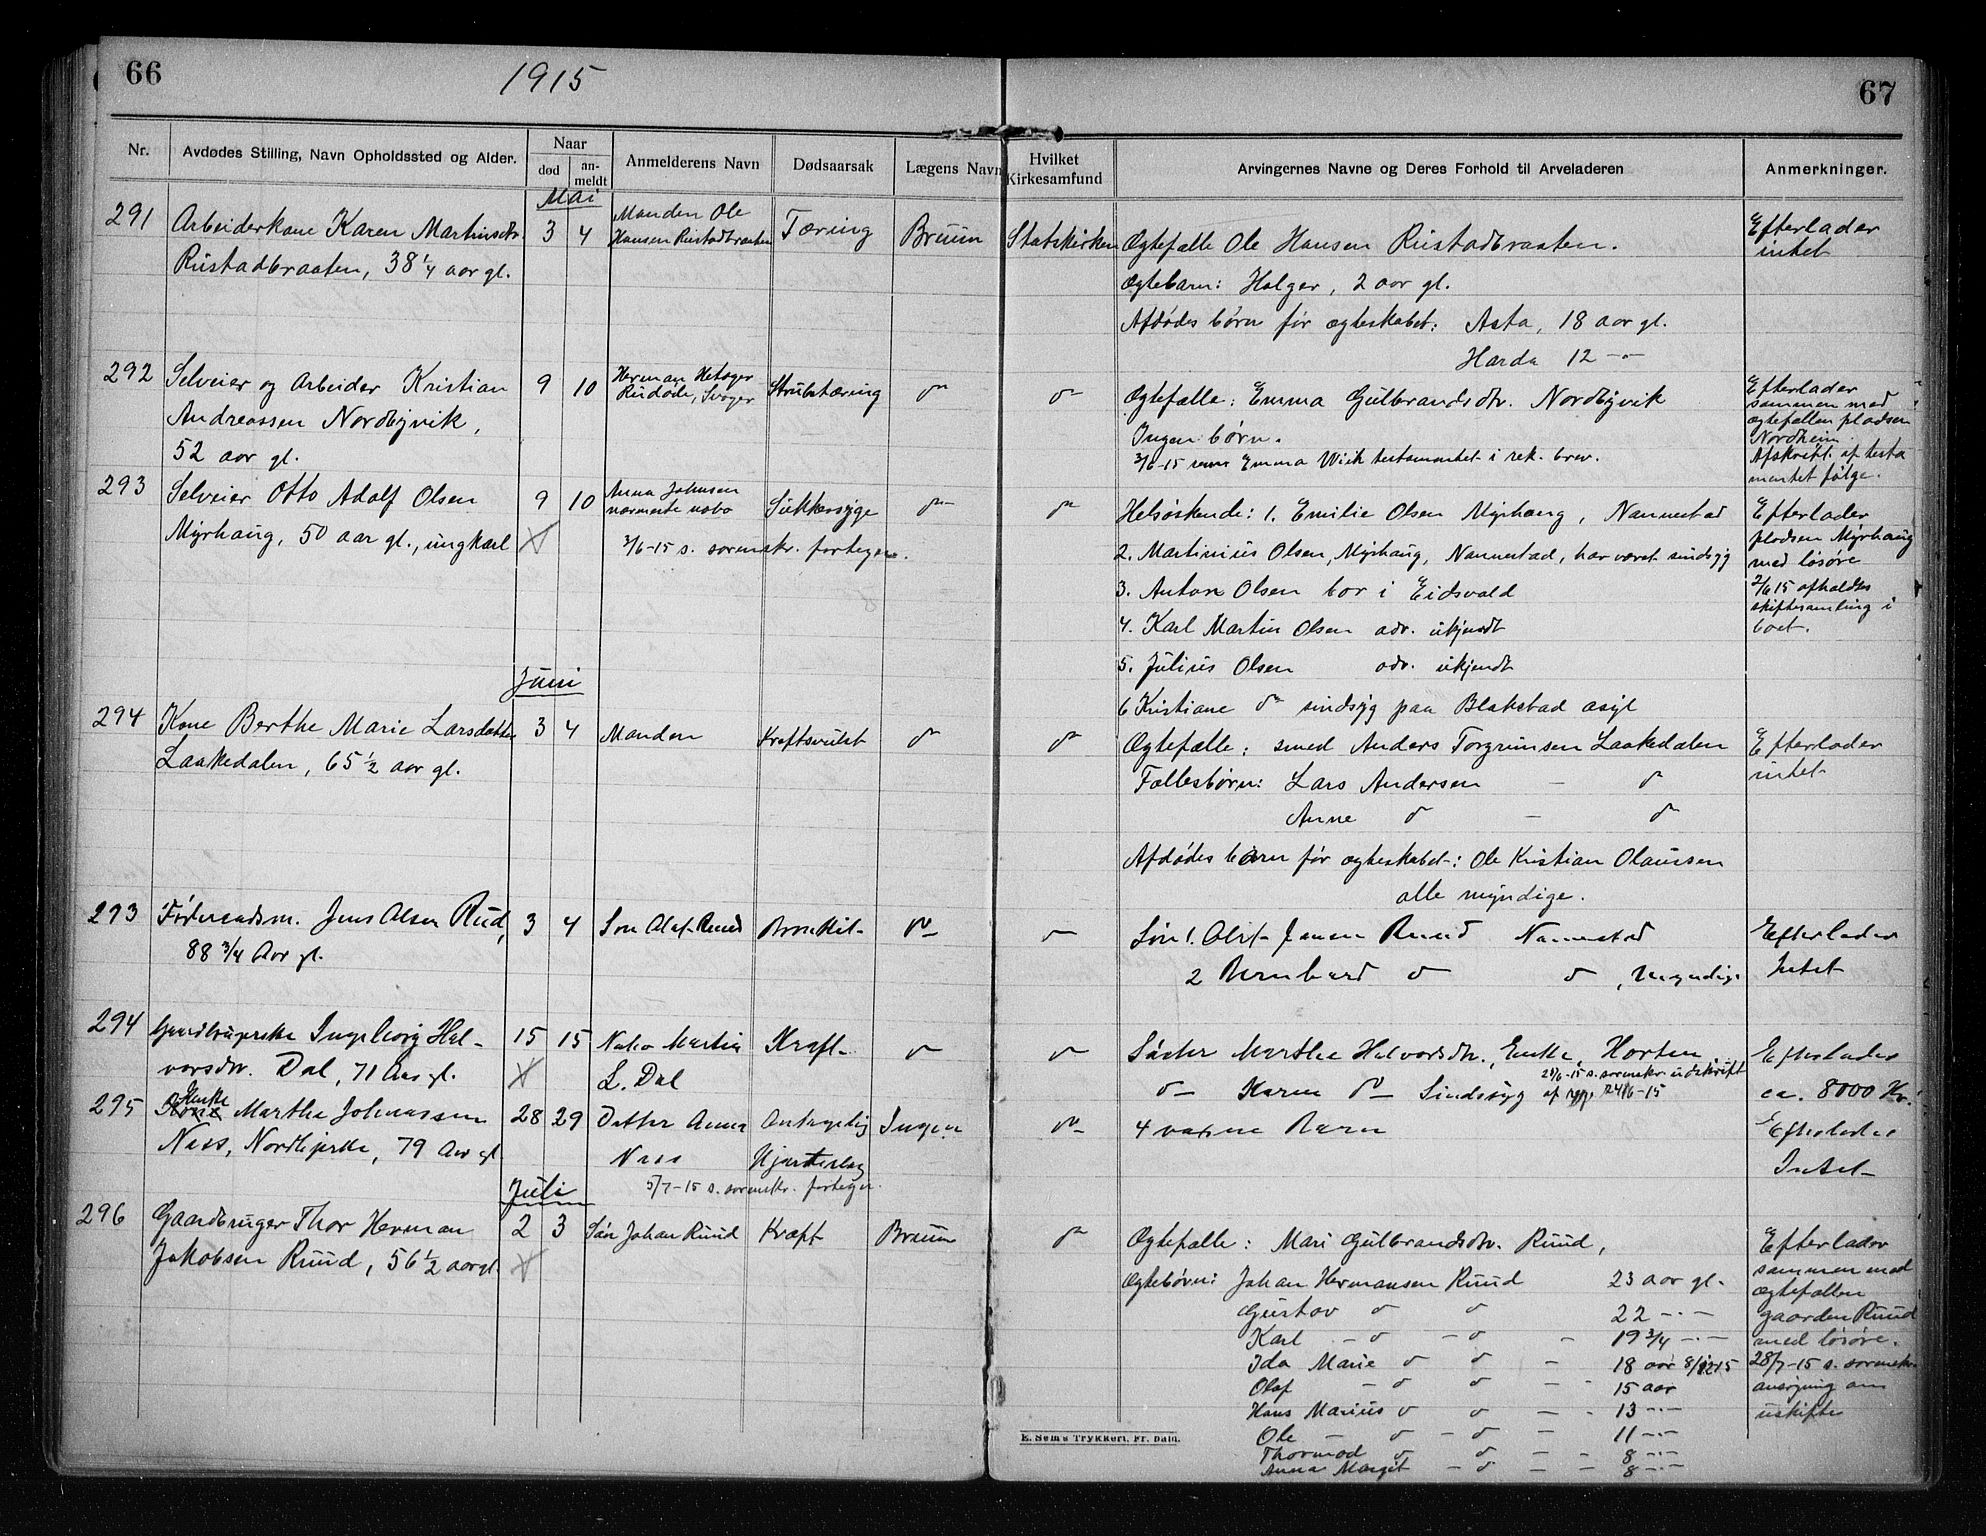 66
1915
67
Nr.
Avdødes Stilling, Navn Opholdssted og Alder.
Naar
død
an-
meldt
Anmelderens Navn
Dødsaarsak
Lægens Navn
Hvilket
Kirkesamfund
Arvingernes Navne og Deres Forhold til Arveladeren
Anmerkninger.
Mai
291
Arbeiderkone Karen Martinsdtr.
Rustadbraaten, 38 1/4 aar gl.
3
4
Manden Ole
Hansen Rustadbraaten
Tæring
Bruun
Statskirken
Ægtefælle Ole Hansen Rustadbraaten.
Ægtebarn: Holger, 2 aar gl.
Afdødes børn før ægteskabet: Asta, 18 aar gl.
Harda 12 -"-
Efterlader
intet
292
Selveier og Arbeider Kristian
Andreassen Nordbyvik,
52 aar gl.
9
10
Herman
Svoger
Strubetæring
do
do
Ægtefælle: Emma Gulbrandsdtr. Nordbyvik
Ingen børn.
3/6-15 Emma Wiik testamentet i rek. brev.
Efterlader
sammen med
ægtefællen pladsen
Nordheim.
Afskrift af testa
mentet følge.
293
Selveier Otto Adolf Olsen
Myrhaug, 50 aar gl., ungkarl
9
10
Anna Johnsen
nærmeste nabo
Sukkersyge
do
do
3/6-15 s. sorenskr. fortegn.
Helsøskende: 1. Emilie Olsen Myrhaug, Nannestad
2. Martinius Olsen, Myrhaug, Nannestad, har været sindsyg
3. Anton Olsen bor i Eidsvold
4. Karl Martin Olsen adr. ukjendt
5. Julius Olsen adr. ukjendt
6 Kristiane do sindsyg paa Blakstad asyl
Efterlader
pladsen Myrhaug
med løsøre
2/6 15 afholdes
skiftesamling i
boet.
Juni
294
Kone Berthe Marie Larsdatter
Laakedalen, 65 1/2 aar gl.
3
4
Manden
Kræftsvulst
do
do
Ægtefælle: smed Anders Torgrimsen Laakedalen
Fællesbørn: Lars Andersen - do
Anne do - do
Afdødes barn før ægteskabet: Ole Kristian Olaussen
alle myndige.
Efterlader
intet
293
Føderaadsm. Jens Olsen Rud,
88 3/4 Aar gl.
3
4
Søn Olaf Ruud
Bronkit
do
do
Søn 1. Jensen Ruud Nannestad
2 Bernhard do do, Myndig
Efterlader
Intet
294
Gaardbrugerske Ingeborg Hal-
vorsdtr. Dal, 71 Aar gl.
15
15
Nabo Martin
L. Dal
Kræft
do
do
Søster Marthe Halvorsdtr., Enke, Horten
do Karen do Sindssyg
24/6-15
Efterlader
ca. 8000 Kr.
295
Enke
Kone Martha Johannessen
Næss, Nordbjerke, 79 Aar gl.
28
29
Datter Anna
Næss
Antagelig
Hjerteslag
Ingen
do
5/7-15 s. sorenskr. fortegn.
4 voxne Barn
Efterlader
Intet
Juli
296
Gaardbruger Thor Herman
Jakobsen Ruud, 56 1/2 aar gl.
2
3
Søn Johan Ruud
Kræft
Bruun
do
Ægtefælle: Mari Gulbrandsdtr. Ruud,
Ægtebørn: Johan Hermansen Ruud 23 aar gl.
Gustav do do 22 -"-
Karl - do - do - 19 3/4 -"-
Ida Marie do do - 18 aar
Olaf - do do - - 15 aar
Hans Marius do do - - 13 -"-
Ole - do - do - 11 -"-
Thormod do do - - 8 -"-
Anna Margit - do - - 8 -"-
Efterlader
sammen med
ægtefællen
gaarden Ruud
med løsøre.
28/7-15 s. sorenskr.
ansøgning om
uskifte
E. Sem's Trykkeri, Fr. Hald.